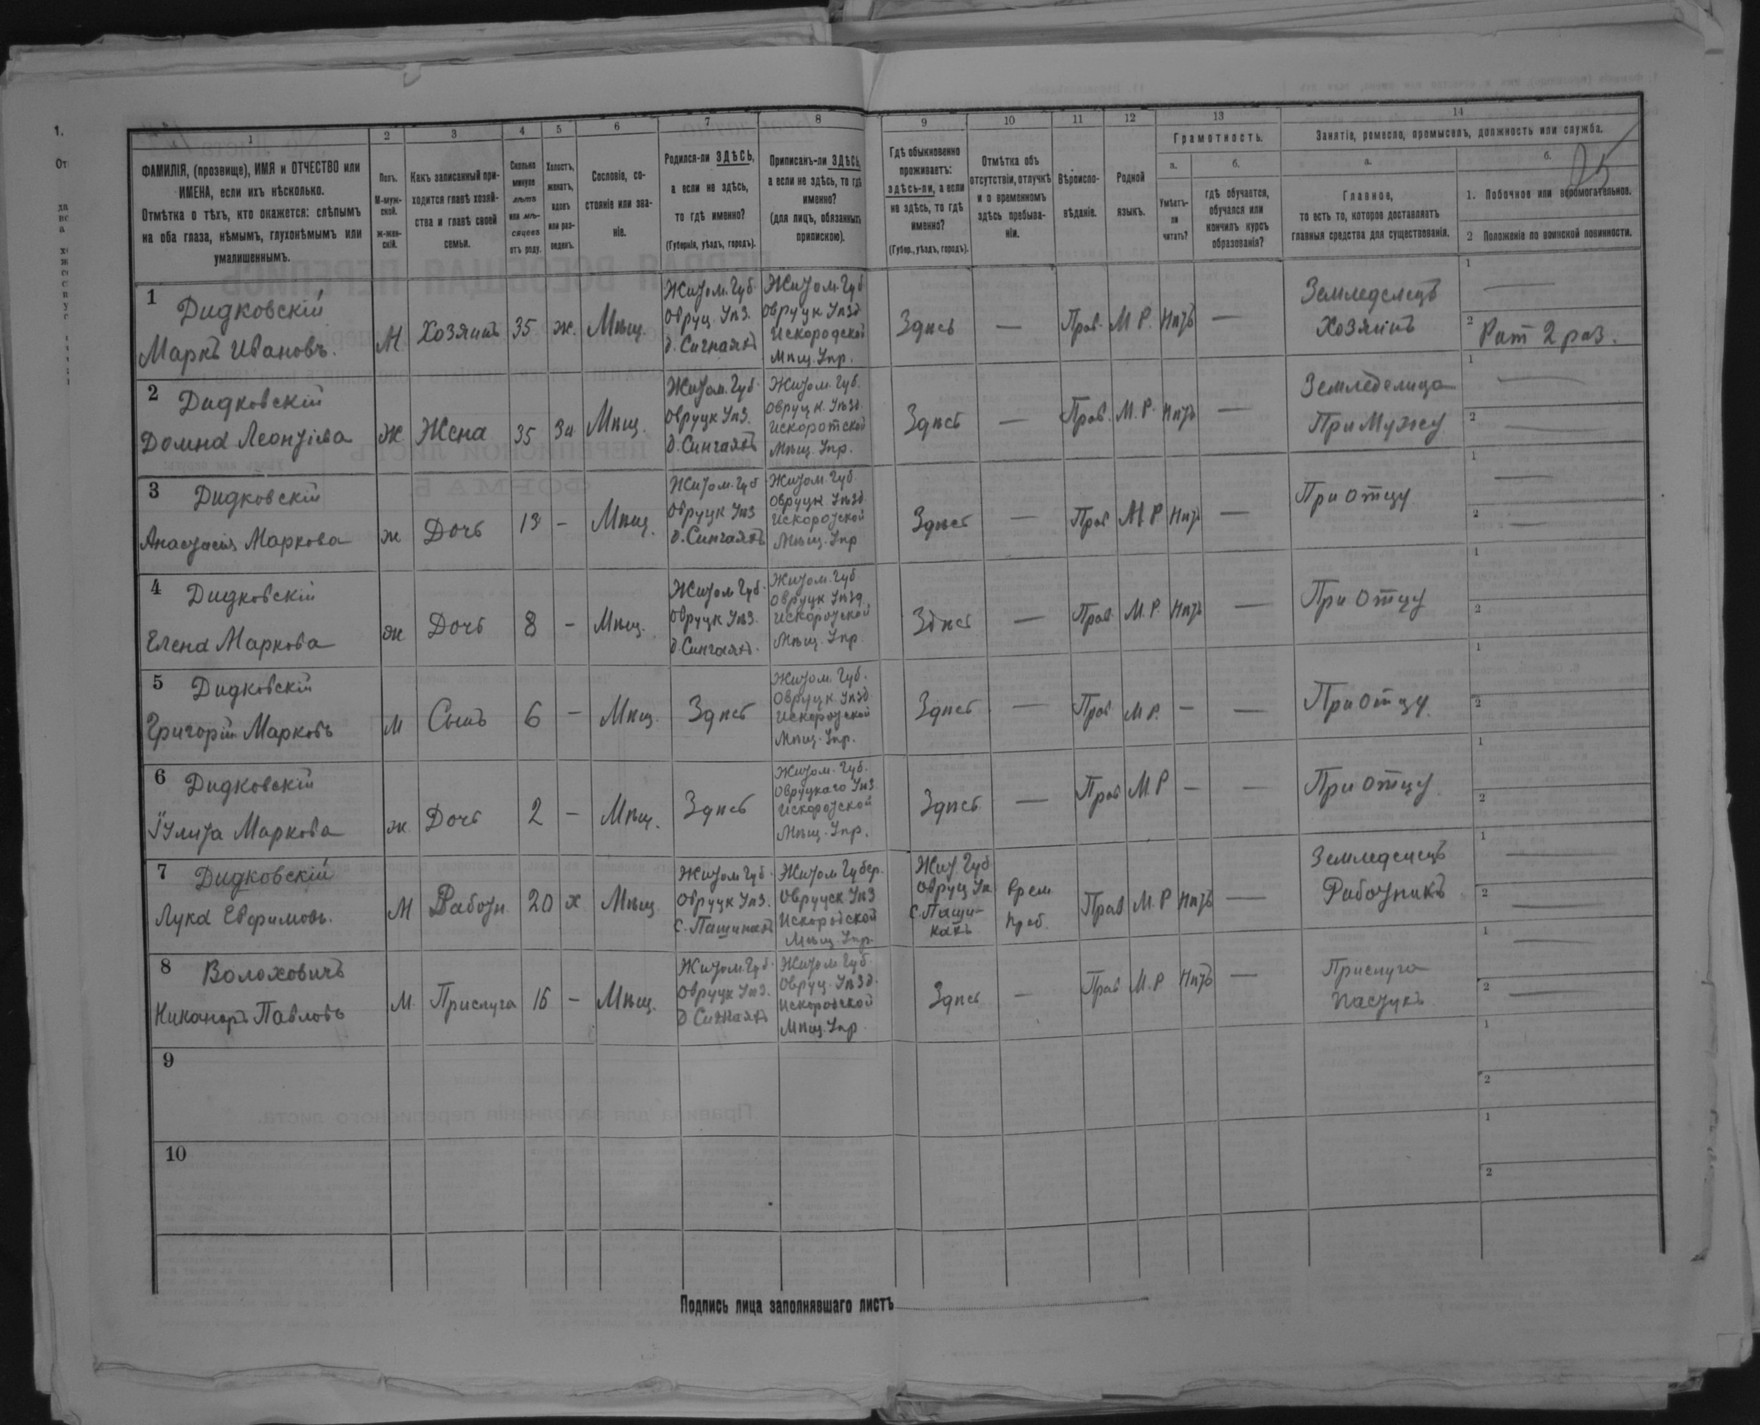 1 2 3 4 5 6 7 8 9 10 11 12 13 14
ФАМИЛІЯ, (прозвище), ИМЯ и ОТЧЕСТВО или
ИМЕНА, если ихъ нѣсколько.
Отмѣтка о тѣхъ, кто окажется: слѣпымъ
на оба глаза, нѣмымъ, глухонѣмымъ или
умалишеннымъ.
Полъ.
М-муж-
ской.
Ж-жен-
скій.
Какъ записанный при-
ходится главѣ хозяй-
ства и главѣ своей
семьи.
Сколько
минуло
лѣтъ
или мѣ-
сяцевъ
отъ роду.
Холостъ,
женатъ,
вдовъ
или раз-
веденъ.
Сословіе, со-
стояніе или зва-
ніе.
Родился-ли ЗДѢСЬ,
а если не здѣсь,
то гдѣ именно?
(Губернія, уѣздъ, городъ).
Приписанъ-ли ЗДѢСЬ,
а если не здѣсь, то гдѣ
именно?
(для лицъ, обязанныхъ
припискою).
Гдѣ обыкновенно
проживаетъ:
здѣсь-ли, а если
не здѣсь, то гдѣ
именно?
(Губер., уѣздъ, городъ).
Отмѣтка объ
отсутствіи, отлучкѣ
и о временномъ
здѣсь пребыва-
ніи.
Вѣроиспо-
вѣданіе.
Родной
языкъ.
Грамотность.
а.
Умѣетъ-
ли
читать?
б.
гдѣ обучается,
обучался или
кончилъ курсъ
образованія?
Занятія, ремесло, промыселъ, должность или служба.
а.
Главное,
то есть то, которое доставляетъ
главныя средства для существованія.
б.
1. Побочное или вспомогательное.
2 Положеніе по воинской повинности.
1 Дидковскій
Маркъ Ивановъ.
М
Хозяинъ
35
ж.
Мѣщ.
Житом. Губ.
Овруц. Уѣз.
д. Сингаяхъ
Житом. Губ
Овруцк Уѣзд
Искоротской
Мѣщ. Упр.
Здѣсь
—
Прав.
М. Р.
Нѣтъ
—
Земледелецъ
Хозяинъ
1 —
2 Рат 2 раз.
2 Дидковскій
Домна Леонтіева
Ж
Жена
35
За
Мѣщ.
Житом. Губ.
Овруцк Уѣз.
д. Сингаяхъ
Житом. Губ.
Овруцк. Уѣзд.
Искоротской
Мѣщ. Упр.
Здѣсь
—
Прав.
М. Р.
Нѣтъ
—
Земледелица
При Мужу
1 —
2 —
3 Дидковскій
Анастасія Маркова
ж
Дочь
13
-
Мѣщ.
Житом. Губ
Овруцк Уѣз
д. Сингаяхъ
Житом. Губ
Овруцк Уѣзд.
Искоротской
Мѣщ. Упр
Здѣсь
—
Прав
М Р
Нѣтъ
—
При отцу
1 —
2 —
4 Дидковскій
Елена Маркова
ж
Дочь
8
-
Мѣщ.
Житом Губ.
Овруцк Уѣз.
д. Сингаяхъ.
Житом. Губ
Овруцк Уѣзд
Искоротской
Мѣщ. Упр.
Здѣсь
—
Прав.
М. Р.
Нѣтъ
—
При отцу
1
2
5 Дидковскій
Григорій Марковъ
М
Сынъ
6
-
Мѣщ.
Здѣсь
Житом. Губ.
Овруцк. Уѣзд
Искоротской
Мѣщ. Упр.
Здѣсь
—
Прав
М Р.
-
—
При отцу.
1
2
6 Дидковскій
Іулита Маркова
ж
Дочь
2
-
Мѣщ.
Здѣсь
Житом. Губ.
Овруцкаго Уѣз
Искоротской
Мѣщ. Упр.
Здѣсь
—
Прав
М. Р
-
—
При отцу.
1
2
7 Дидковскій
Лука Евфимовъ.
М
Работн.
20
х
Мѣщ
Житом Губ.
Овруцк Уѣз.
С. Пашинахъ
Житом Губер.
Овруцск Уѣз
Искоротской
Мѣщ. Упр.
Жит. Губ
Овруц Уѣ.
С. Паши-
нахъ
Врем
преб.
Прав
М. Р
Нѣтъ
—
Земледелецъ
Работникъ
1 —
2 —
8 Волоховичъ
Никаноръ Павловъ
М
Прислуга
16
-
Мѣщ.
Житом Губ.
Овруцк Уѣз.
д Сингаяхъ
Житом Губ.
Овруц. Уѣзд.
Искоротской
Мѣщ. Упр
Здѣсь
-
Прав
М. Р
Нѣтъ
—
Прислуга
Пастухъ
1 —
2 —
9
1
2
10
1
2
Подпись лица заполнявшаго листъ